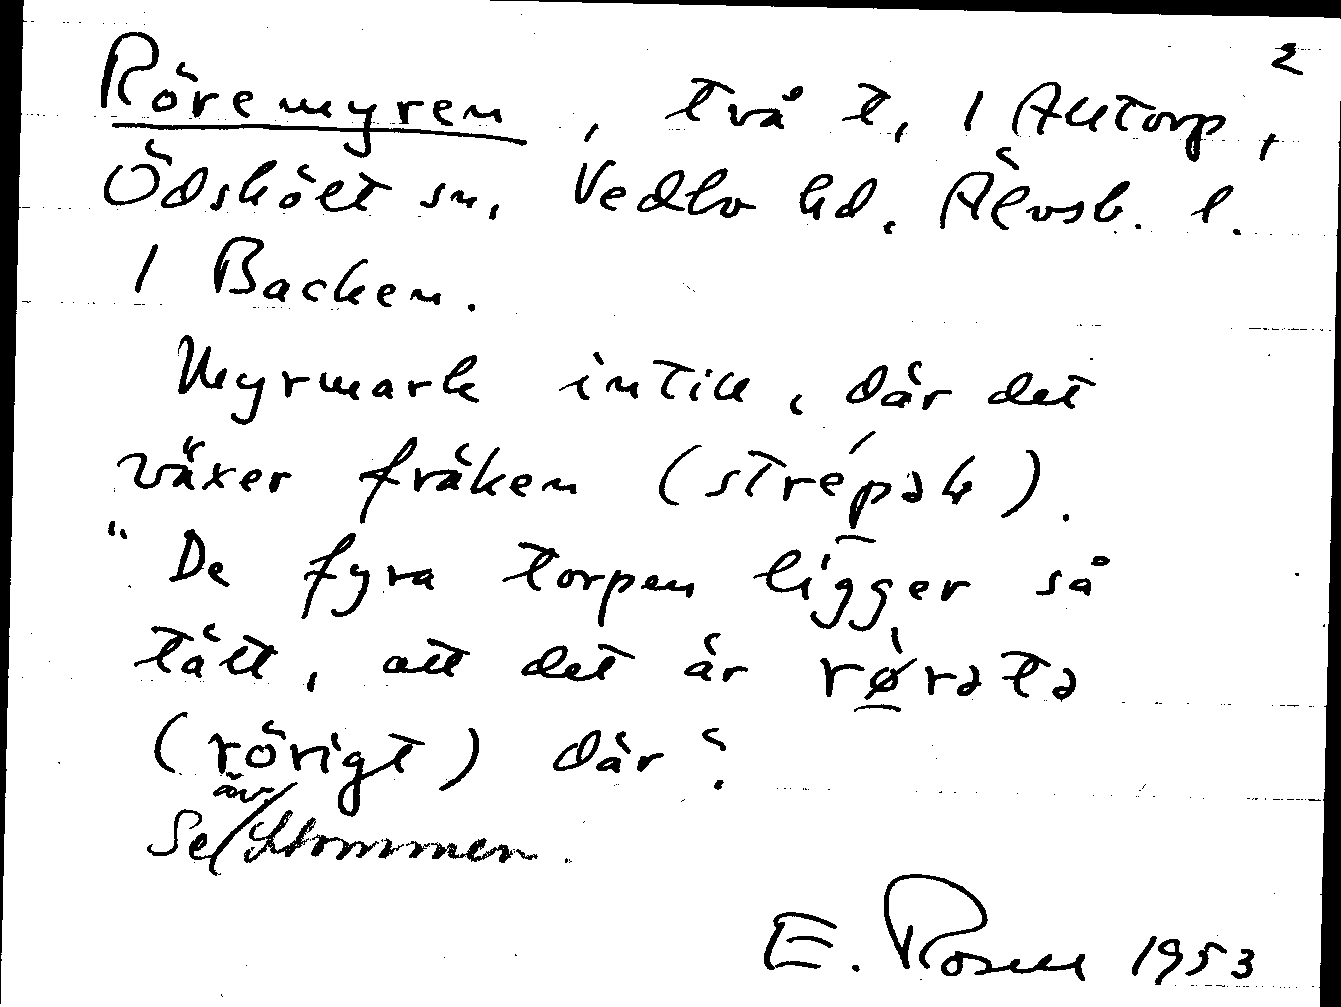 2
Röremyren, två t, 1 Alltorp,
Ödskölt sn, Vedbo hd, Älvsb. l.
1 Backen.
Myrmark intill, där det
växer fräken (strépək).
"De fyra torpen ligger så
tätt, att det är rø̀rətə
(rörigt) där".
Se även Stommen.
E. Rosell 1953